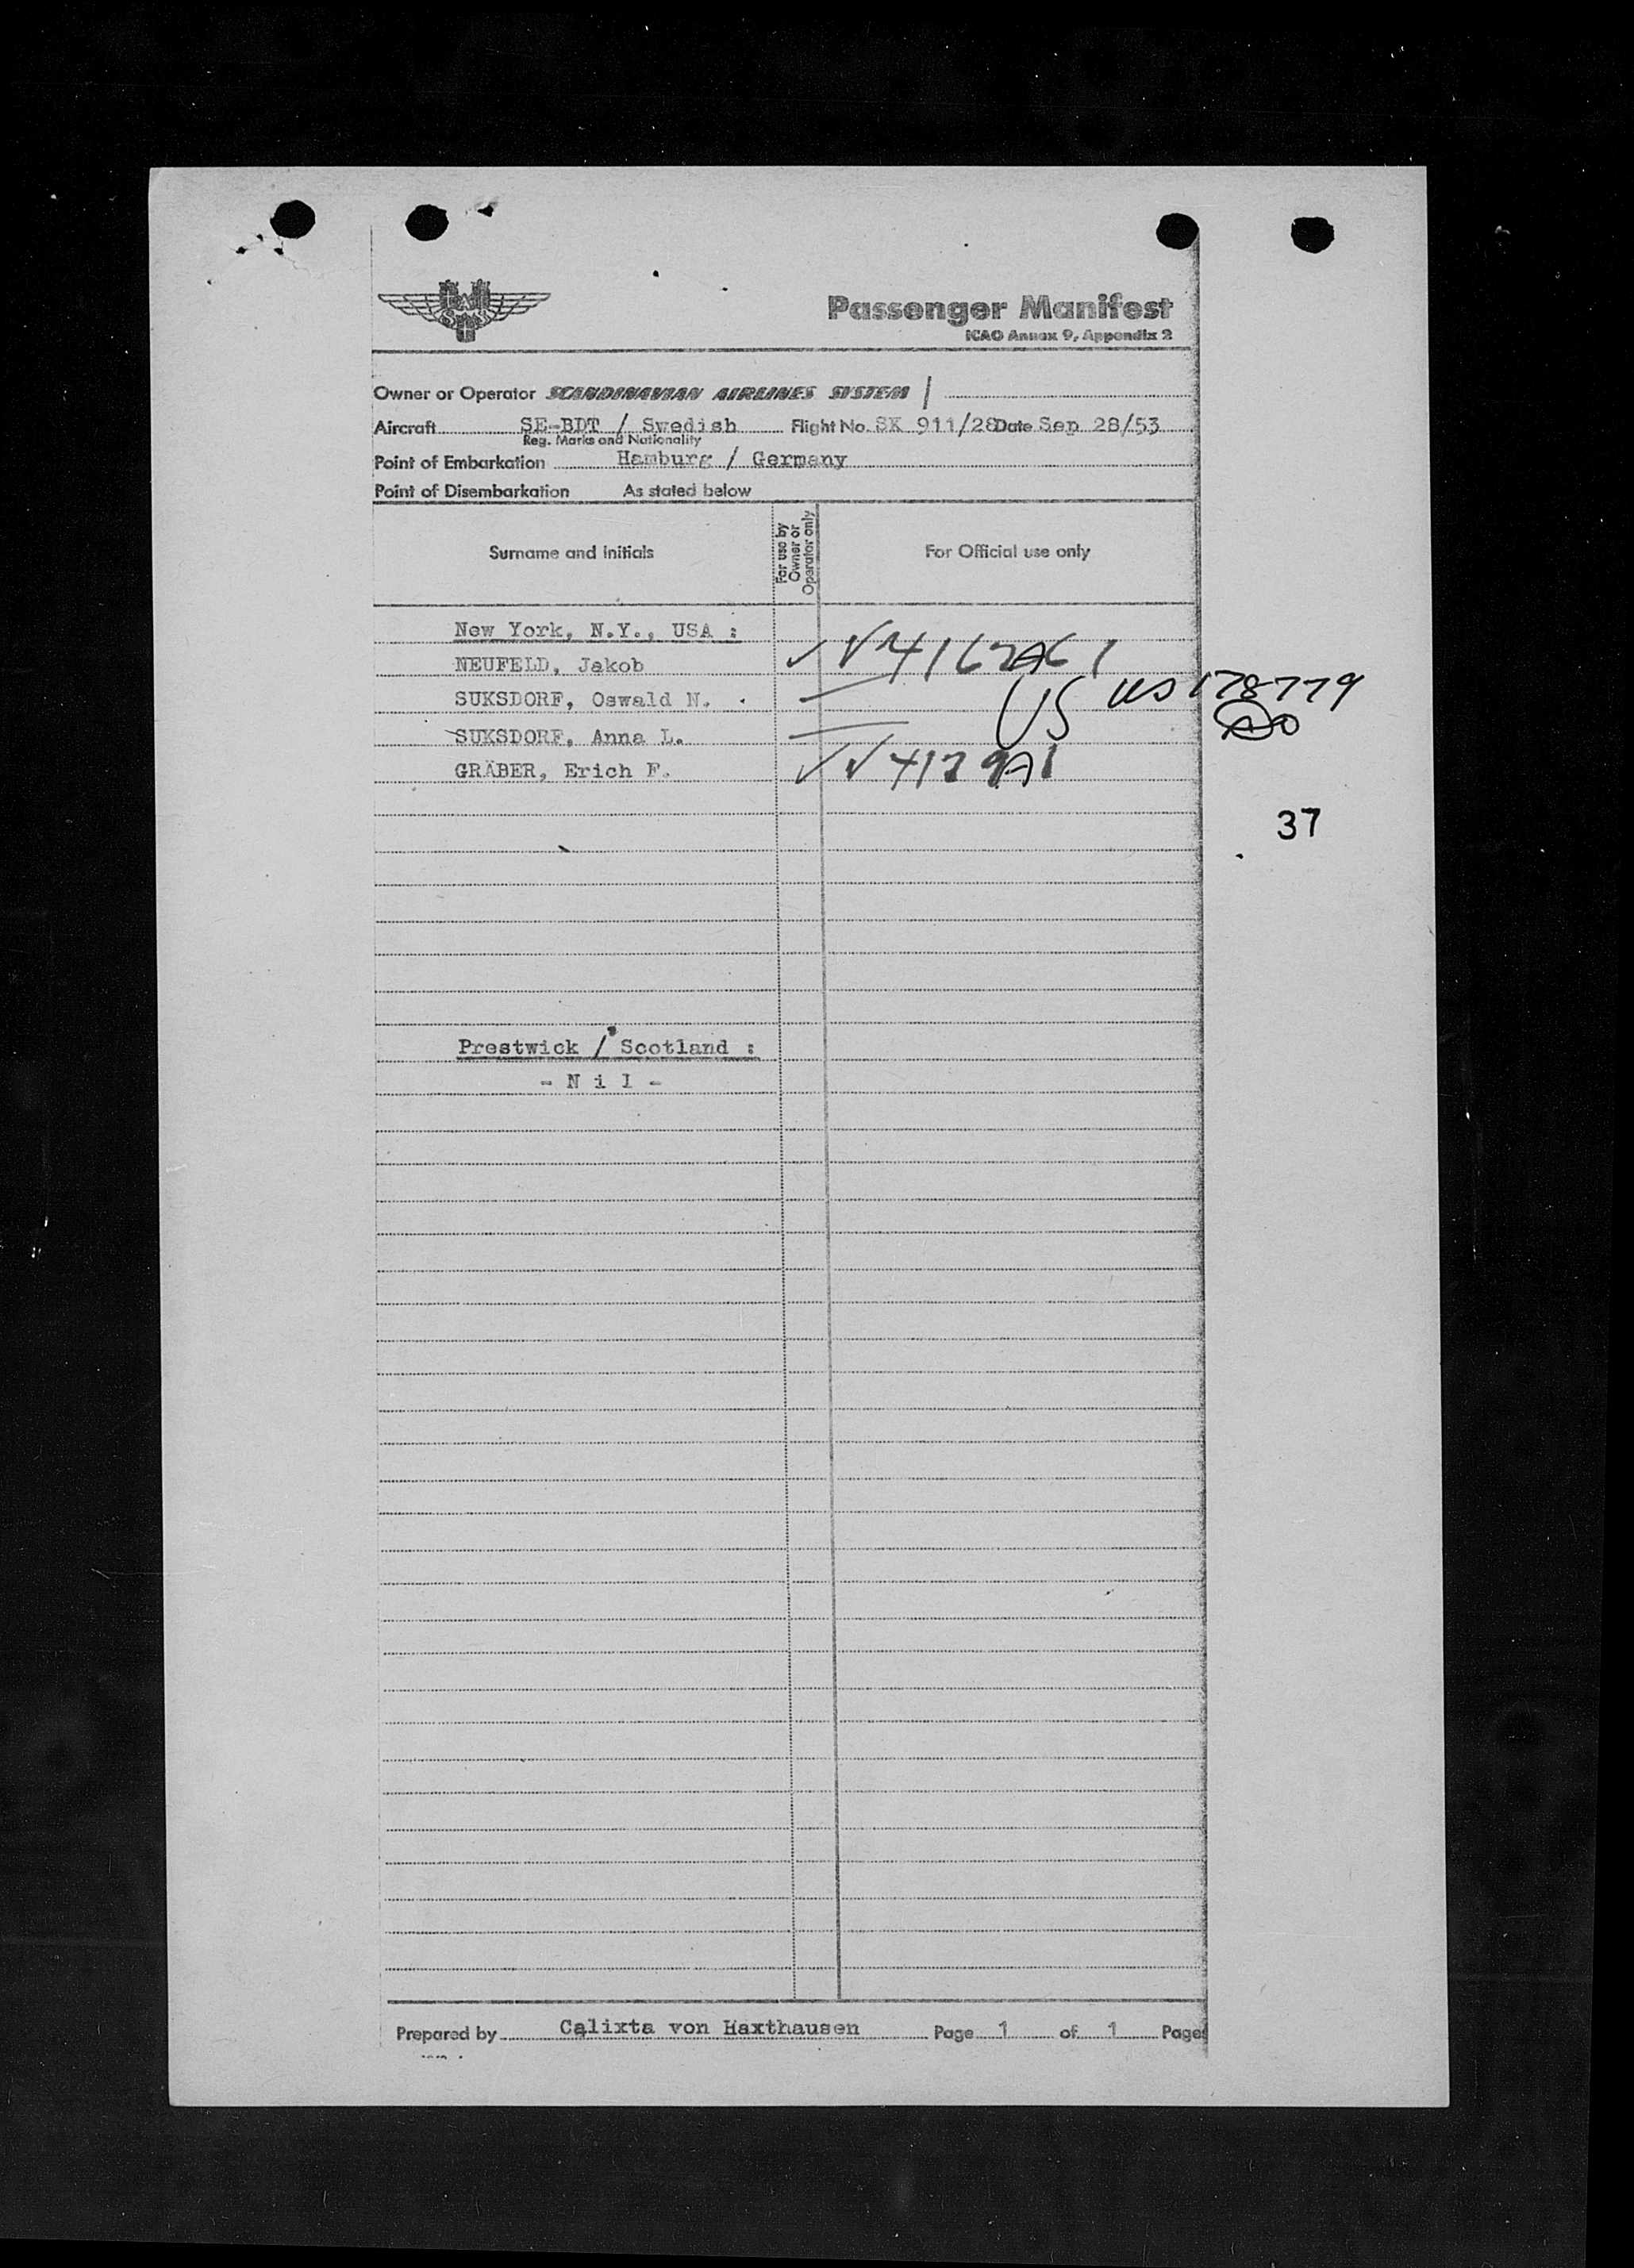 SAS
Passenger Manifest
ICAO Annex 9, Appendix 2
Owner or Operator SCANDINAVIAN AIRLINES SYSTEM
Aircraft SE-BDT / Swedish Flight No. SK 911/28 Date Sep 28/53
Reg. Marks and Nationality
Point of Embarkation Hamburg / Germany
Point of Disembarkation As stated below
Surname and Initials
For use by
Owner or
Operator only
For Official use only
New York, N.Y., USA :
NEUFELD, Jakob
SUKSDORF, Oswald N.
US US 178779
SUKSDORF, Anna L.
GRÄBER, Erich F.
37
Prestwick / Scotland :
- N i l -
Prepared by Calixta von Haxthausen Page 1 of 1 Pages